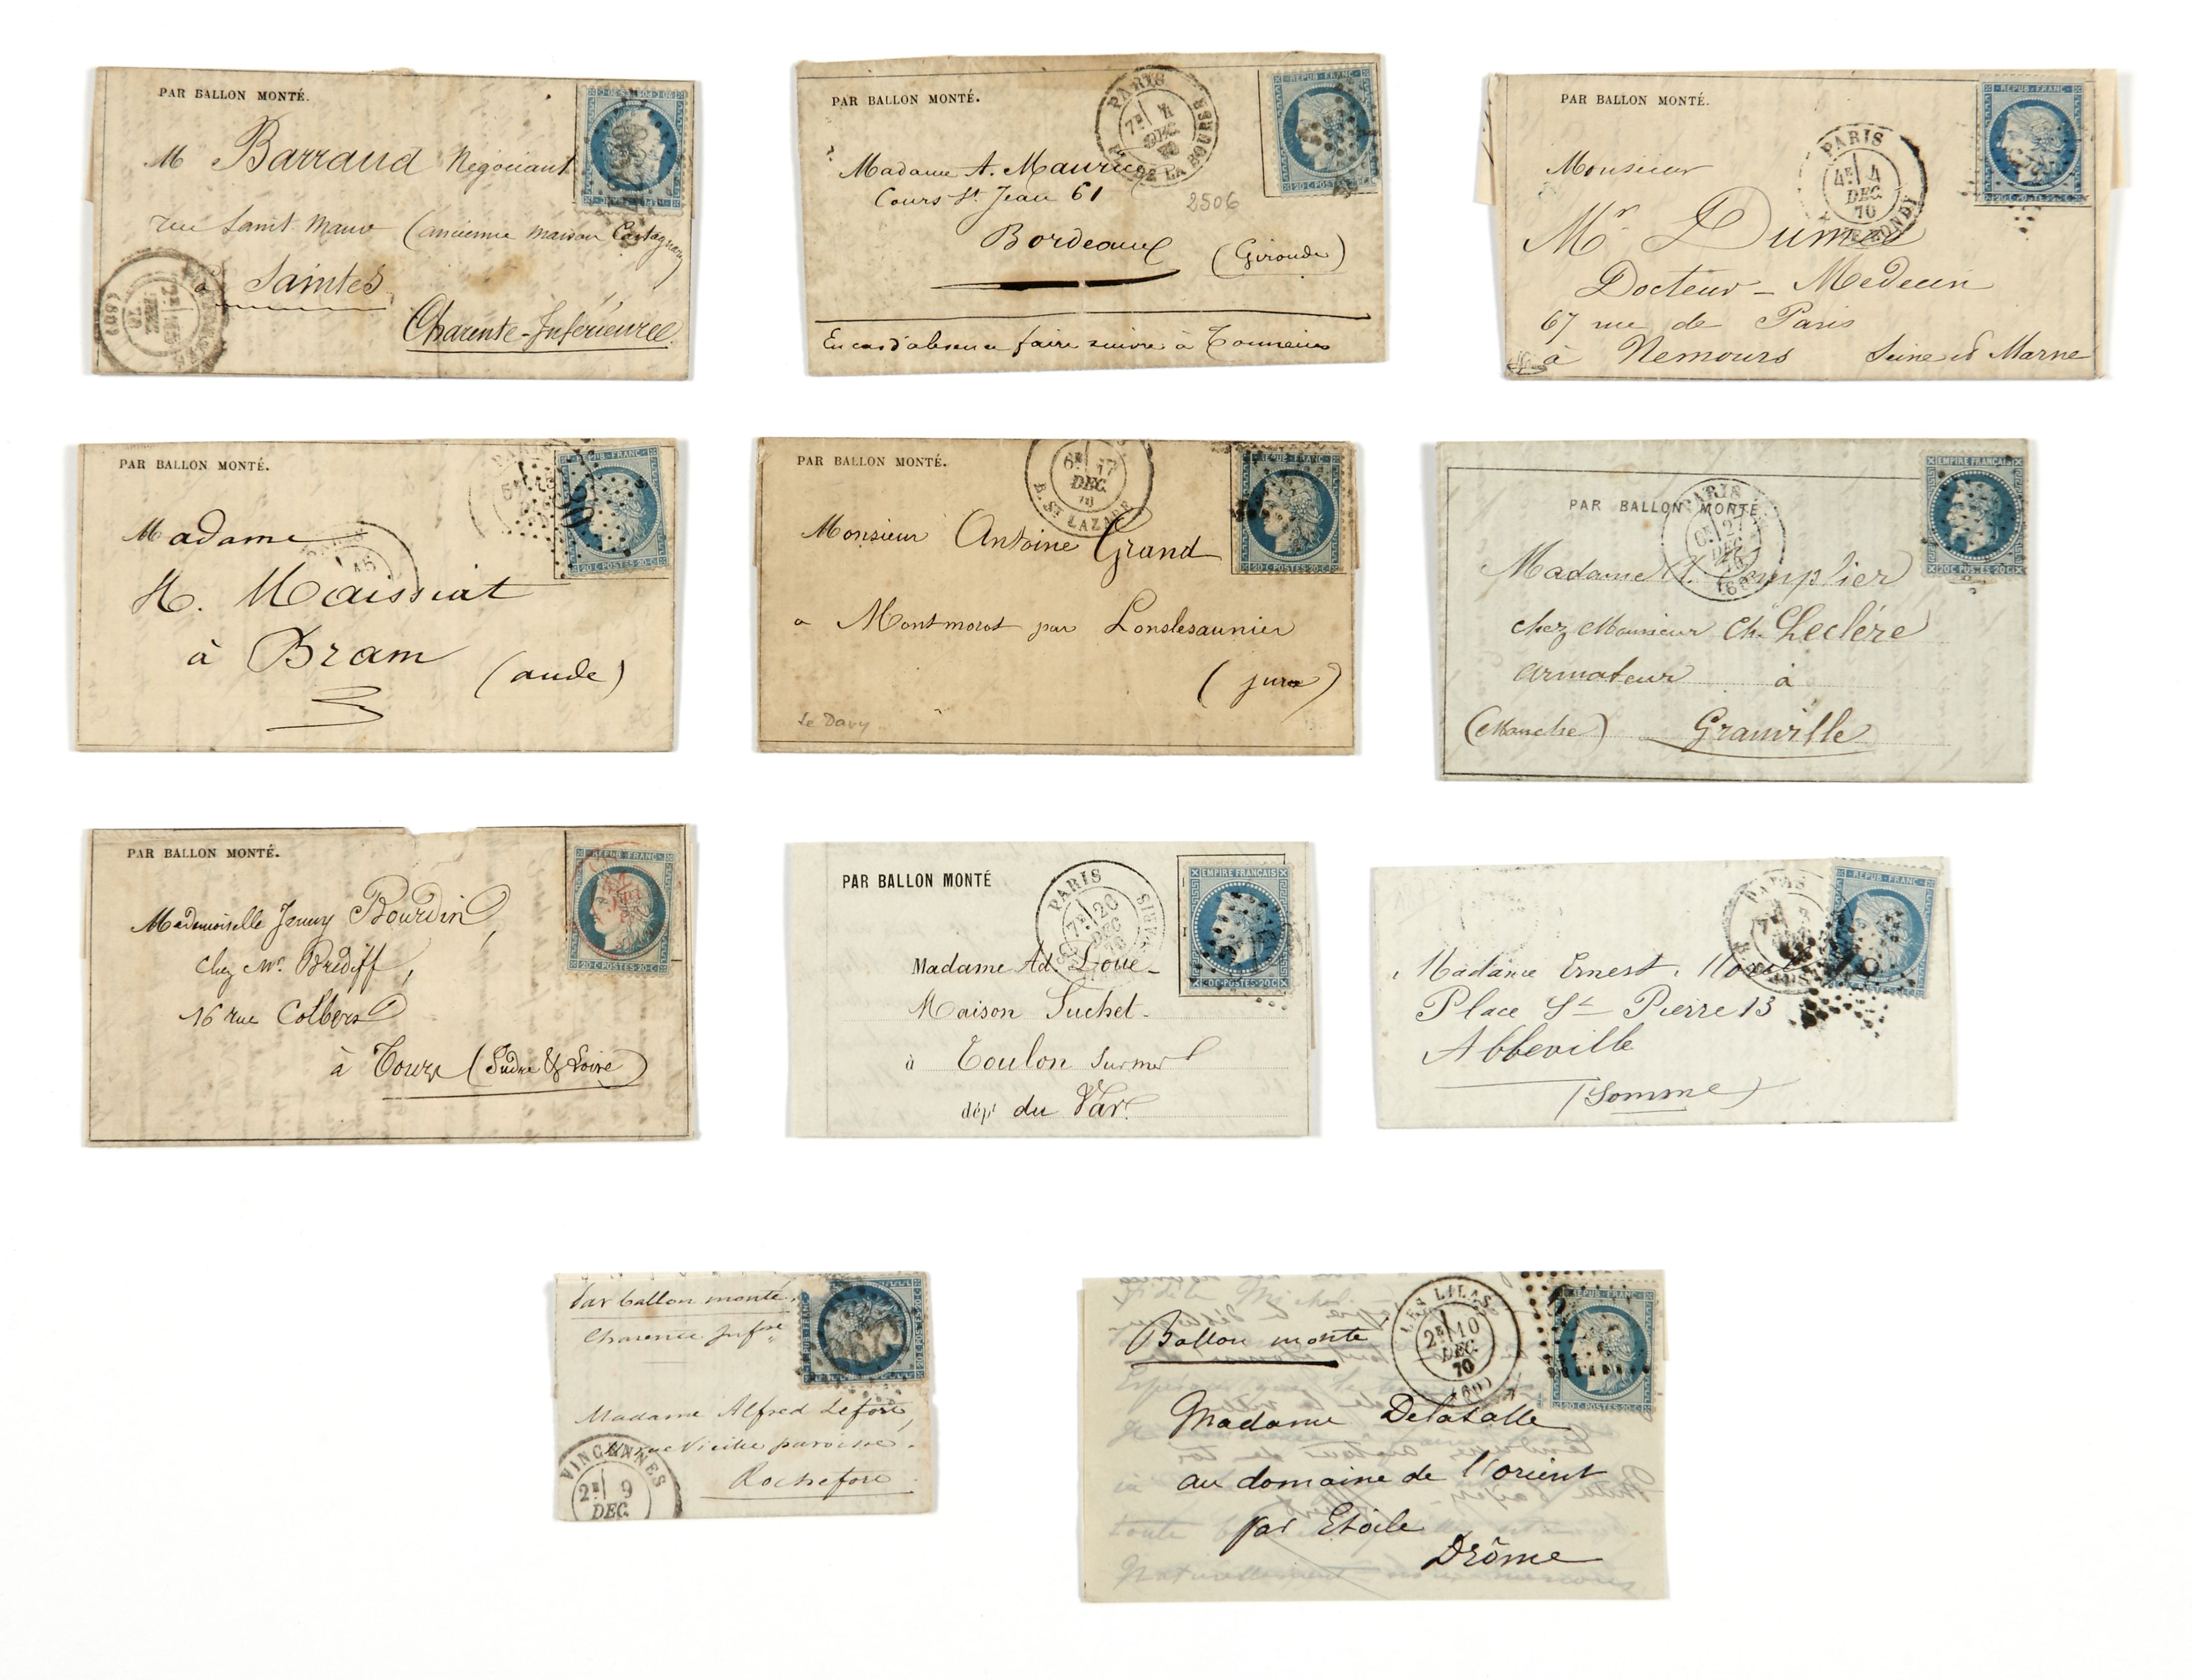 PAR BALLON MONTÉ.
M Barraud Négociant
rue Saint Maur (ancienne maison
à Saintes
Charente-Inférieure
PAR BALLON MONTÉ.
REPUB · FRANC
20 C · POSTES
PARIS
7E 4
DEC.
70
DE LA BOURSE
Madame A. Maurice
Cours St. Jean 61
2506
Bordeaux
(Gironde)
En cas d'absence faire suivre à Tonneins
PAR BALLON MONTÉ.
REPUB · FRANC
PARIS
4E 4
DEC.
70
Monsieur
Mr
Docteur - Medecin
67 rue de Paris
à Nemours Seine et Marne
PAR BALLON MONTÉ.
REPUB · FRANC
20 C · POSTES · 20 C
PARIS
Madame
H. Maissiat
à Bram (aude)
PAR BALLON MONTÉ.
REPUB · FRANC
20 C · POSTES · 20 C
6E 17
DEC.
70
R. ST LAZARE
Monsieur Antoine Grand
a Montmorot par Lonslesaunier
(jura)
Le Davy
PAR BALLON MONTÉ.
EMPIRE FRANÇAIS
20 C · POSTES · 20 C
PARIS
27
DEC.
70
(60)
Madame
chez Monsieur Ch. Leclére
armateur à
(Manche) Granville
PAR BALLON MONTÉ.
REPUB · FRANC
20 C · POSTES · 20 C
Mademoiselle Jenny Bourdin
chez Mr. Brédiff,
16 rue Colbert
à Tours (Indre & Loire)
PAR BALLON MONTÉ
EMPIRE FRANÇAIS
20 C · POSTES · 20 C
PARIS
7E 20
DEC.
70
Madame Ad. Loue
Maison Suchet
à Toulon sur mer
dépt du Var
REPUB · FRANC
PARIS
7E
Madame Ernest
Place St Pierre 13
Abbeville
(Somme)
Par ballon monté
Charente Infre
REPUB · FRANC
Madame Alfred Lefort,
rue Vieille paroisse.
Rochefort
VINCENNES
2E 9
DEC.
REPUB · FRANC
20 C · POSTES · 20 C
LES LILAS
2E 10
DEC.
70
(60)
Ballon monté
Madame Delasalle
au domaine de l'orient
par Etoile
Drôme